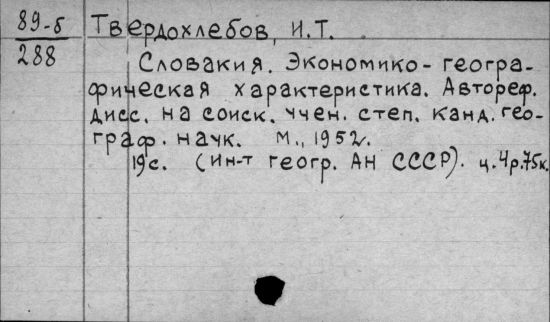 89-б
288
Твердохлебов, И.Т.
Словакия. Экономико-геогра-
фическая характеристика. Автореф.
дисс. на соиск. учен. степ. канд. гео-
граф. наук. М., 1952.
19с. (Ин-т геогр. АН СССР). ц.4р.75к.